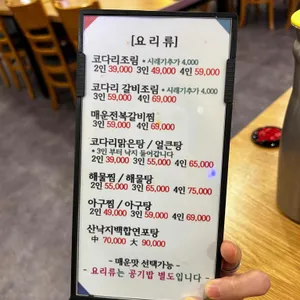 [요 리 류]
코다리조림 * 시래기추가 4,000
2인 39,000 3인 49,000 4인 59,000
코다리 갈비조림 * 시래기추가 4,000
3인 59,000 4인 69,000
매운전복갈비찜
3인 59,000 4인 69,000
코다리맑은탕 / 얼큰탕
* 3인 부터 낙지 들어갑니다
2인 39,000 3인 55,000 4인 65,000
해물찜 / 해물탕
2인 55,000 3인 65,000 4인 75,000
아구찜 / 아구탕
2인 49,000 3인 59,000 4인 69,000
산낙지백합연포탕
中 70,000 大 90,000
- 매운맛 선택가능 -
- 요리류는 공기밥 별도입니다 -